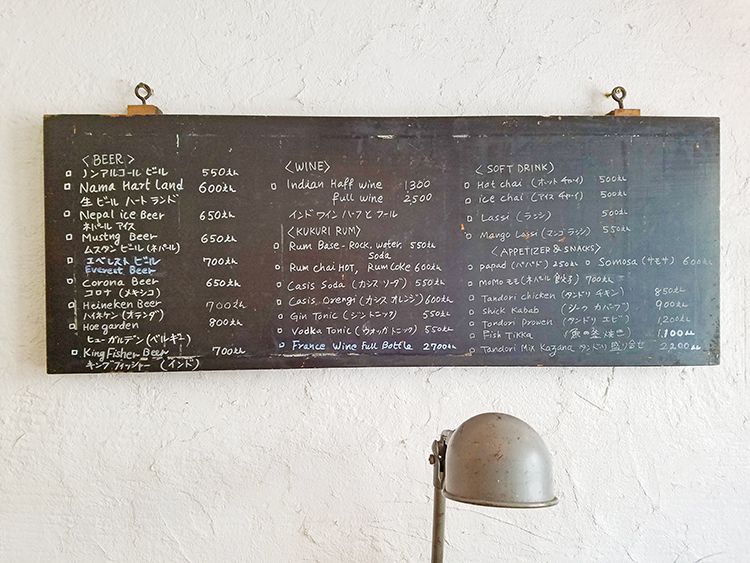 <BEER>
ノンアルコールビール 550えん
Nama Hart Land 600えん
生ビール ハートランド
Nepal ice Beer 650えん
ネパール アイス
Mustng Beer 650えん
ムスタン ビール (ネパール)
エベレスト ビール 700えん
Everest Beer
Corona Beer 650えん
コロナ (メキシコ)
Heineken Beer 700えん
ハイネケン (オランダ)
Hoegarden 800えん
ヒューガルデン (ベルギー)
King Fisher Beer 700えん
キングフィッシャー (インド)
<WINE>
Indian Haff wine 1300
full wine 2500
インドワイン ハーフと フール
<KUKURI RUM>
Rum Base - Rock, water, 550えん
Soda
Rum chai HOT, Rum Coke 600えん
Casis Soda (カシス ソーダ) 550えん
Casis Orengi (カシス オレンジ) 600えん
Gin Tonic (ジントニック) 550えん
Vodka Tonic (ウォッカ トニック) 550えん
France Wine Full Bottle 2700えん
<SOFT DRINK>
Hot chai (ホット チャイ) 500えん
ice chai (アイス チャイ) 500えん
Lassi (ラッシ) 500えん
Mango Lassi (マンゴ ラッシ) 550えん
<APPETIZER & SNACKS>
papad (パパド) 250えん Somosa (サモサ) 600えん
MoMo モモ (ネパール 餃子) 700えん
Tandori chicken (タンドリ チキン) 850えん
Shick Kabab (シーク カバブ) 900えん
Tandori Prowen (タンドリ エビ) 1200えん
Fish Tikka (魚の釜焼き) 1,100えん
Tandori Mix Kazana タンドリ 盛り合せ 2,200えん